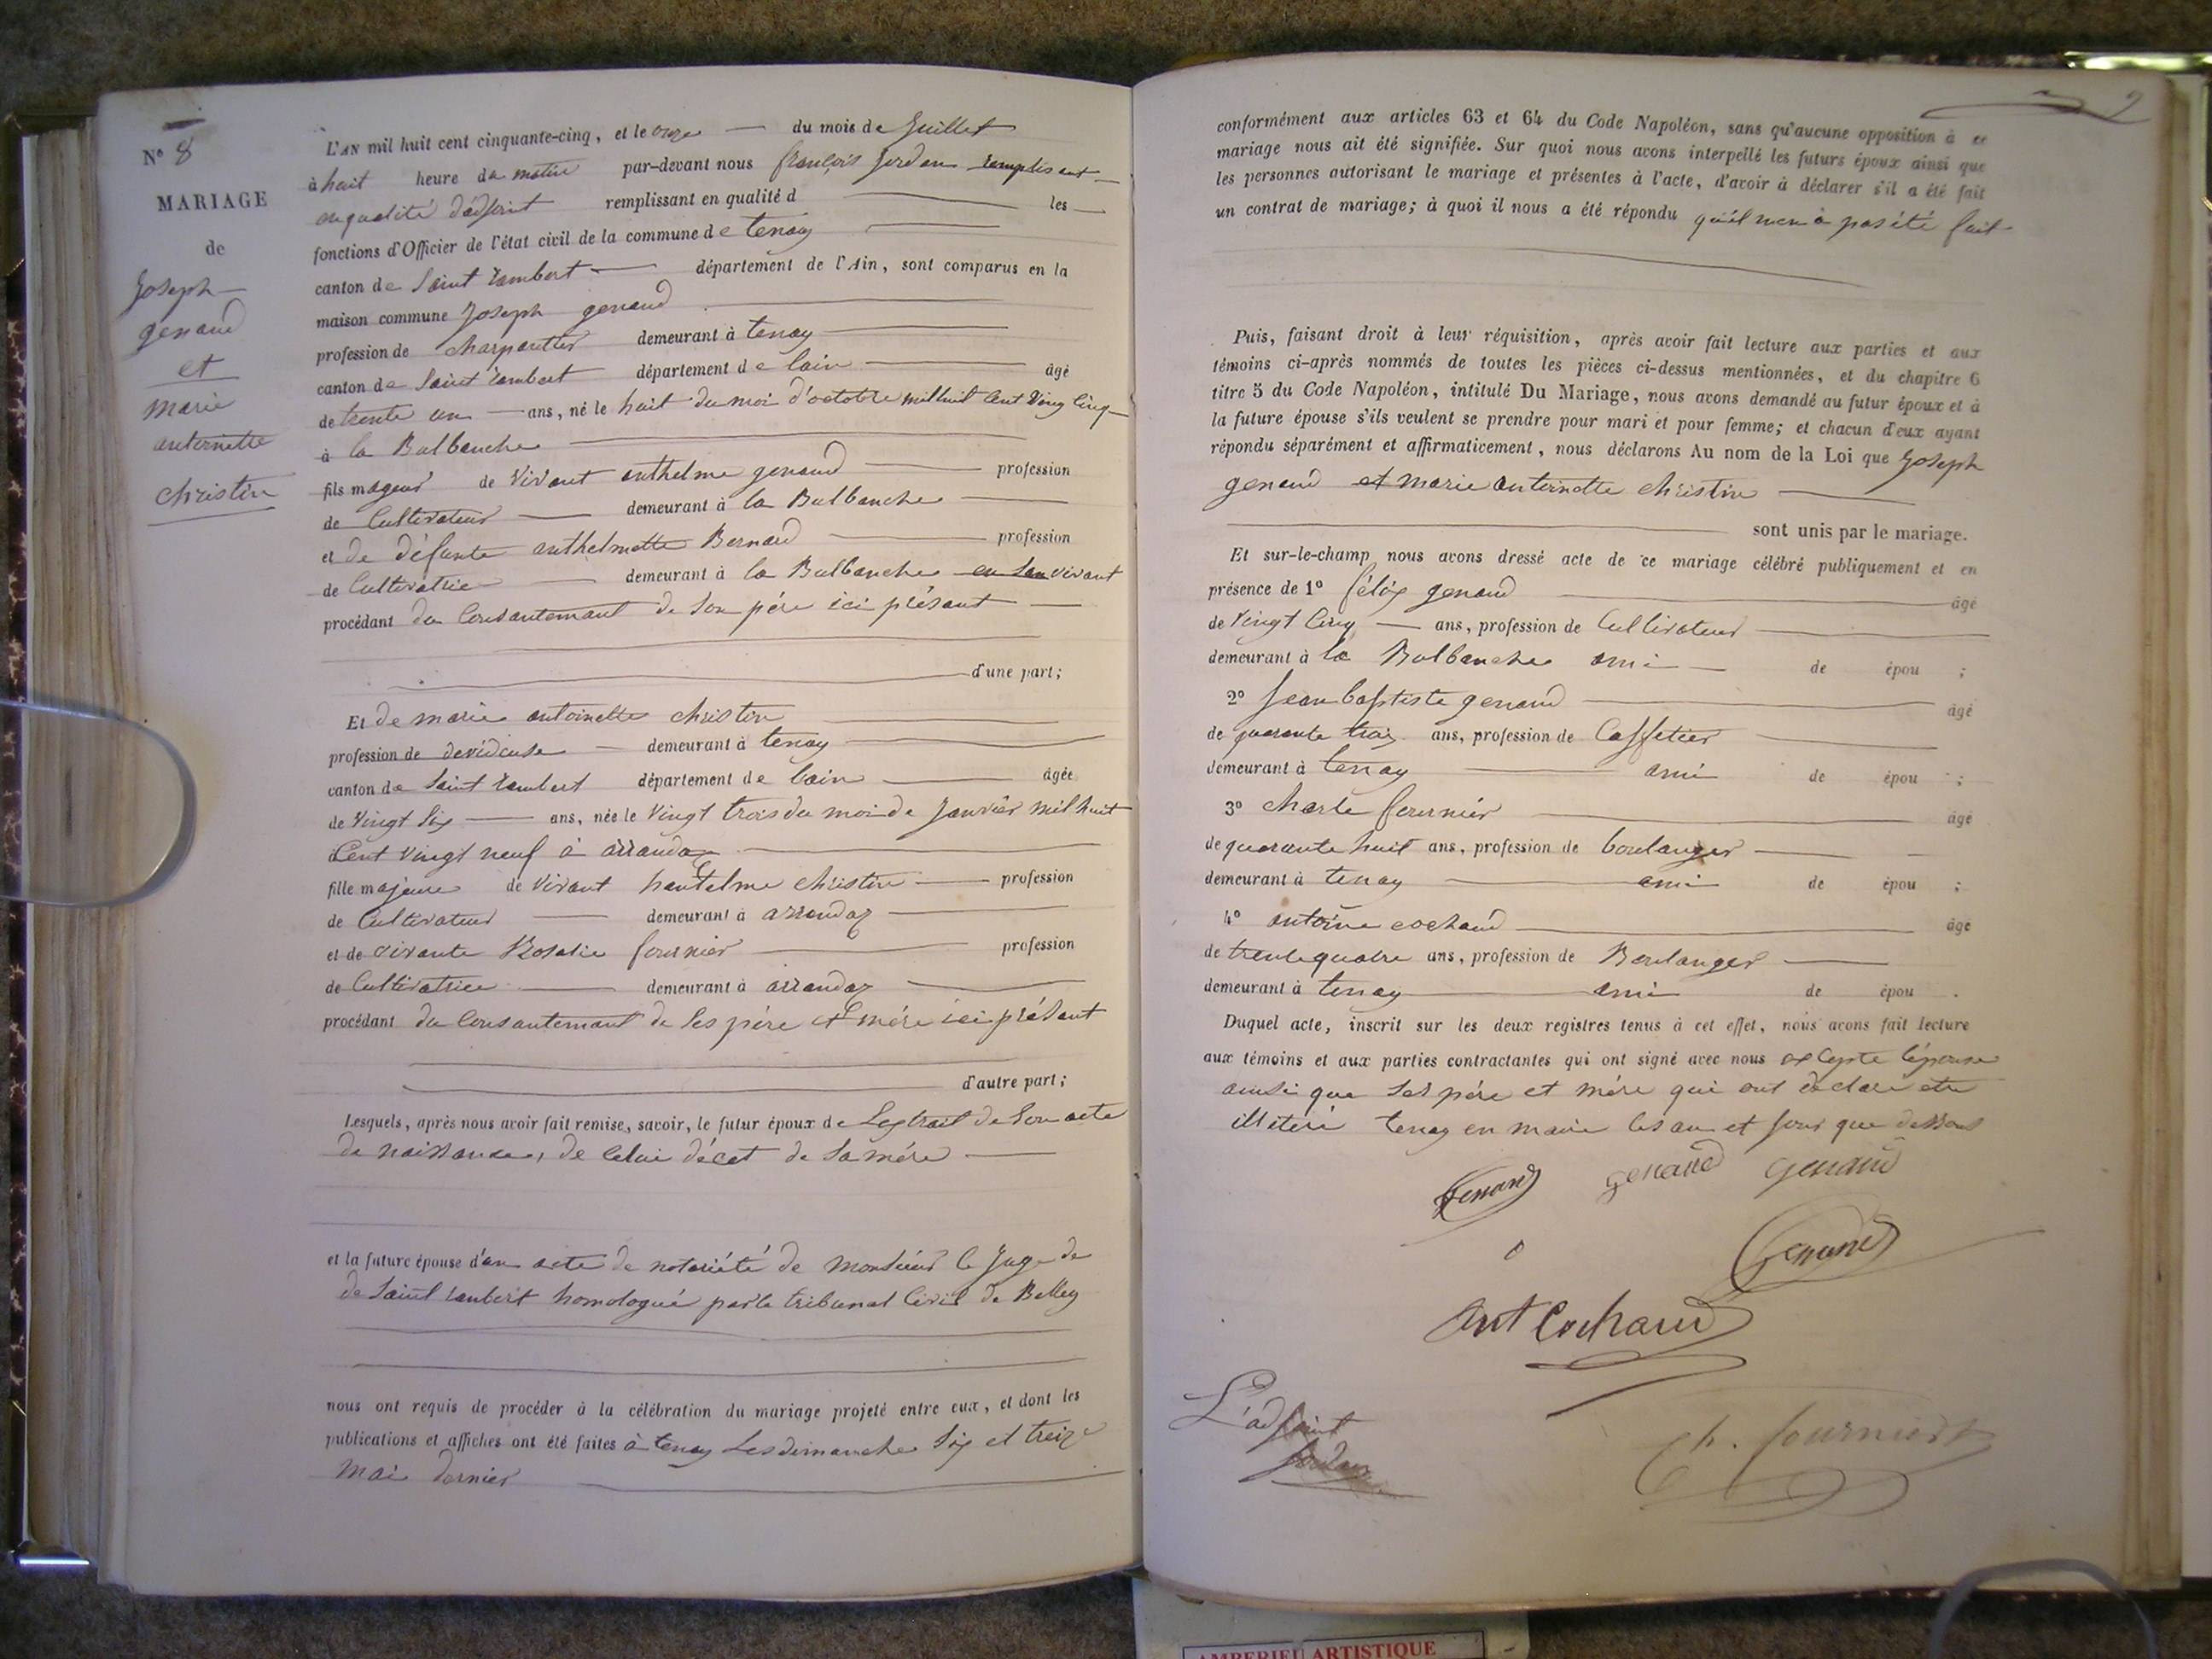 N° 8
MARIAGE
de
Joseph
genaud
et
marie
antoinette
christin
L'AN mil huit cent cinquante-cinq, et le onze du mois de Juillet
à huit heure du matin par-devant nous françois Jordan remplissant
en qualité d'adjoint remplissant en qualité d les
fonctions d'Officier de l'état civil de la commune de tenay
canton de Saint rambert département de l'Ain, sont comparus en la
maison commune Joseph genaud
profession de charpantier demeurant à tenay
canton de Saint rambert département de lain âgé
de trente un ans, né le huit du moi d'octobre mil huit cent ving cinq
à la Balbanche
fils mageur de vivant anthelme genaud profession
de Cultivateur demeurant à la Balbanche
et de défunte anthelmette Bernard profession
de Cultivatrice demeurant à la Balbanche en son vivant
procédant du Consantemant de son père ici présant
d'une part;
Et de marie antoinette christin
profession de devideuse demeurant à tenay
canton de Saint rambert département de lain âgée
de vingt six ans, née le vingt trois du moi de Janvier mil huit
Cent vingt neuf à arrandaz
fille majeure de vivant hantelme christin profession
de Cultivateur demeurant à arrandaz
et de vivante Rosalie fournier profession
de Cultivatrice demeurant à arrandaz
procédant du Consantemant de ses père et mère ici présant
d'autre part;
Lesquels, après nous avoir fait remise, savoir, le futur époux de Lextrait de son acte
de naissance, de Celui décet de sa mère
et la future épouse d'un acte de notoriété de monsieur le Juge de
de Saint rambert homologué par le tribunal Civil de Belley
nous ont requis de procéder à la célébration du mariage projeté entre eux, et dont les
publications et affiches ont été faites à tenay Les dimanche six et treize
mai dernier
conformément aux articles 63 et 64 du Code Napoléon, sans qu'aucune opposition à ce
mariage nous ait été signifiée. Sur quoi nous avons interpellé les futurs époux ainsi que
les personnes autorisant le mariage et présentes à l'acte, d'avoir à déclarer s'il a été fait
un contrat de mariage; à quoi il nous a été répondu qu'il n'en a pas été fait
Puis, faisant droit à leur réquisition, après avoir fait lecture aux parties et aux
témoins ci-après nommés de toutes les pièces ci-dessus mentionnées, et du chapitre 6
titre 5 du Code Napoléon, intitulé Du Mariage, nous avons demandé au futur époux et à
la future épouse s'ils veulent se prendre pour mari et pour femme; et chacun d'eux ayant
répondu séparément et affirmativement, nous déclarons Au nom de la Loi que Joseph
genaud et marie antoinette christin
sont unis par le mariage.
Et sur-le-champ nous avons dressé acte de ce mariage célébré publiquement et en
présence de 1° félix genaud âgé
de vingt cinq ans, profession de Cultivateur
demeurant à la Balbanche ami de épou ;
2° Jean baptiste genaud âgé
de quarante trois ans, profession de Caffetier
demeurant à tenay ami de épou ;
3° charle fournier âgé
de quarante huit ans, profession de boulanger
demeurant à tenay ami de épou ;
4° antoine cochaud âgé
de trente quatre ans, profession de Boulanger
demeurant à tenay ami de épou .
Duquel acte, inscrit sur les deux registres tenus à cet effet, nous avons fait lecture
aux témoins et aux parties contractantes qui ont signé avec nous excepte lépouse
ainsi que ses père et mère qui ont déclaré etre
illiteré tenay en mairie les an et jour que dessus
Genand genaud genaud
Genand
Ant Cochaud
L'adjoint
Jordan
Ch. fournier
AMBERIEU ARTISTIQUE